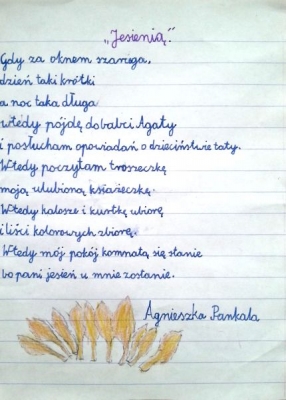 „Jesienią".
Gdy za oknem szaruga,
dzień taki krótki
a noc taka długa
wtedy pójdę do babci Agaty
i posłucham opowiadań o dzieciństwie taty.
Wtedy poczytam troszeczkę
moją ulubioną książeczkę.
Wtedy kalosze i kurtkę ubiorę
i liści kolorowych zbiorę.
Wtedy mój pokój komnatą się stanie
bo pani jesień u mnie zostanie.
Agnieszka Pankala